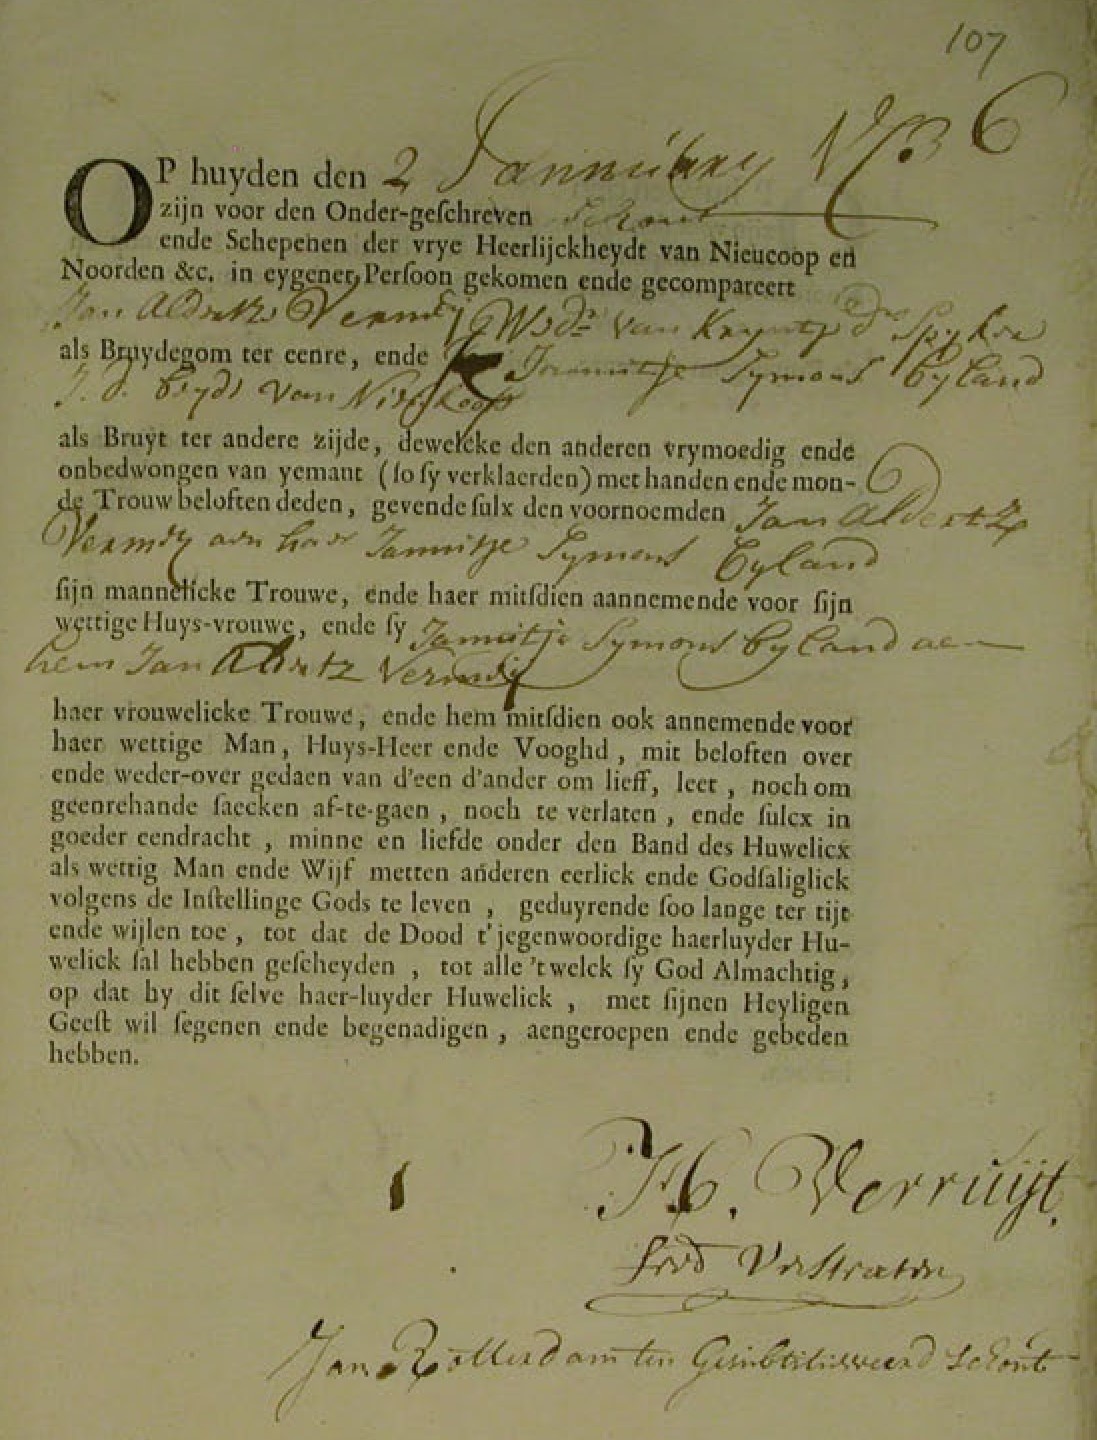 107
OP huyden den 2 Januuary
zijn voor den Onder-geſchreven Schout
ende Schepenen der vrye Heerlijckheydt van Nieucoop en
Noorden &c. in eygener Perſoon gekomen ende gecompareert
Jan Aldertsz Vermeij Wedr van d Spyker
als Bruydegom ter eenre, ende Jannitje Symons Eyland
J. d. beyde van Nieukoop
als Bruyt ter andere zijde, dewelcke den anderen vrymoedig ende
onbedwongen van yemant (ſo ſy verklaerden) met handen ende mon-
de Trouw beloften deden, gevende ſulx den voornoemden Jan Aldertsz
Vermeij aen haer Jannitje Symons Eyland
ſijn mannelicke Trouwe, ende haer mitſdien aannemende voor ſijn
wettige Huys-vrouwe, ende ſy Jannitje Symons Eyland aen
hem Jan Aldertz Vermeij
haer vrouwelicke Trouwe, ende hem mitſdien ook annemende voor
haer wettige Man, Huys-Heer ende Vooghd, mit beloften over
ende weder-over gedaen van d'een d'ander om lieff, leet, noch om
geenrehande ſaecken af-te-gaen, noch te verlaten, ende ſulcx in
goeder eendracht, minne en liefde onder den Band des Huwelicx
als wettig Man ende Wijf metten anderen eerlick ende Godſaliglick
volgens de Inſtellinge Gods te leven, geduyrende ſoo lange ter tijt
ende wijlen toe, tot dat de Dood t'jegenwoordige haerluyder Hu-
welick ſal hebben geſcheyden, tot alle 'twelck ſy God Almachtig,
op dat hy dit ſelve haer-luyder Huwelick, met ſijnen Heyligen
Geeſt wil ſegenen ende begenadigen, aengeroepen ende gebeden
hebben.
H. Verruijt.
Fred Verstraten
Jan Rotterdam ten Gesubstitueerd Schout